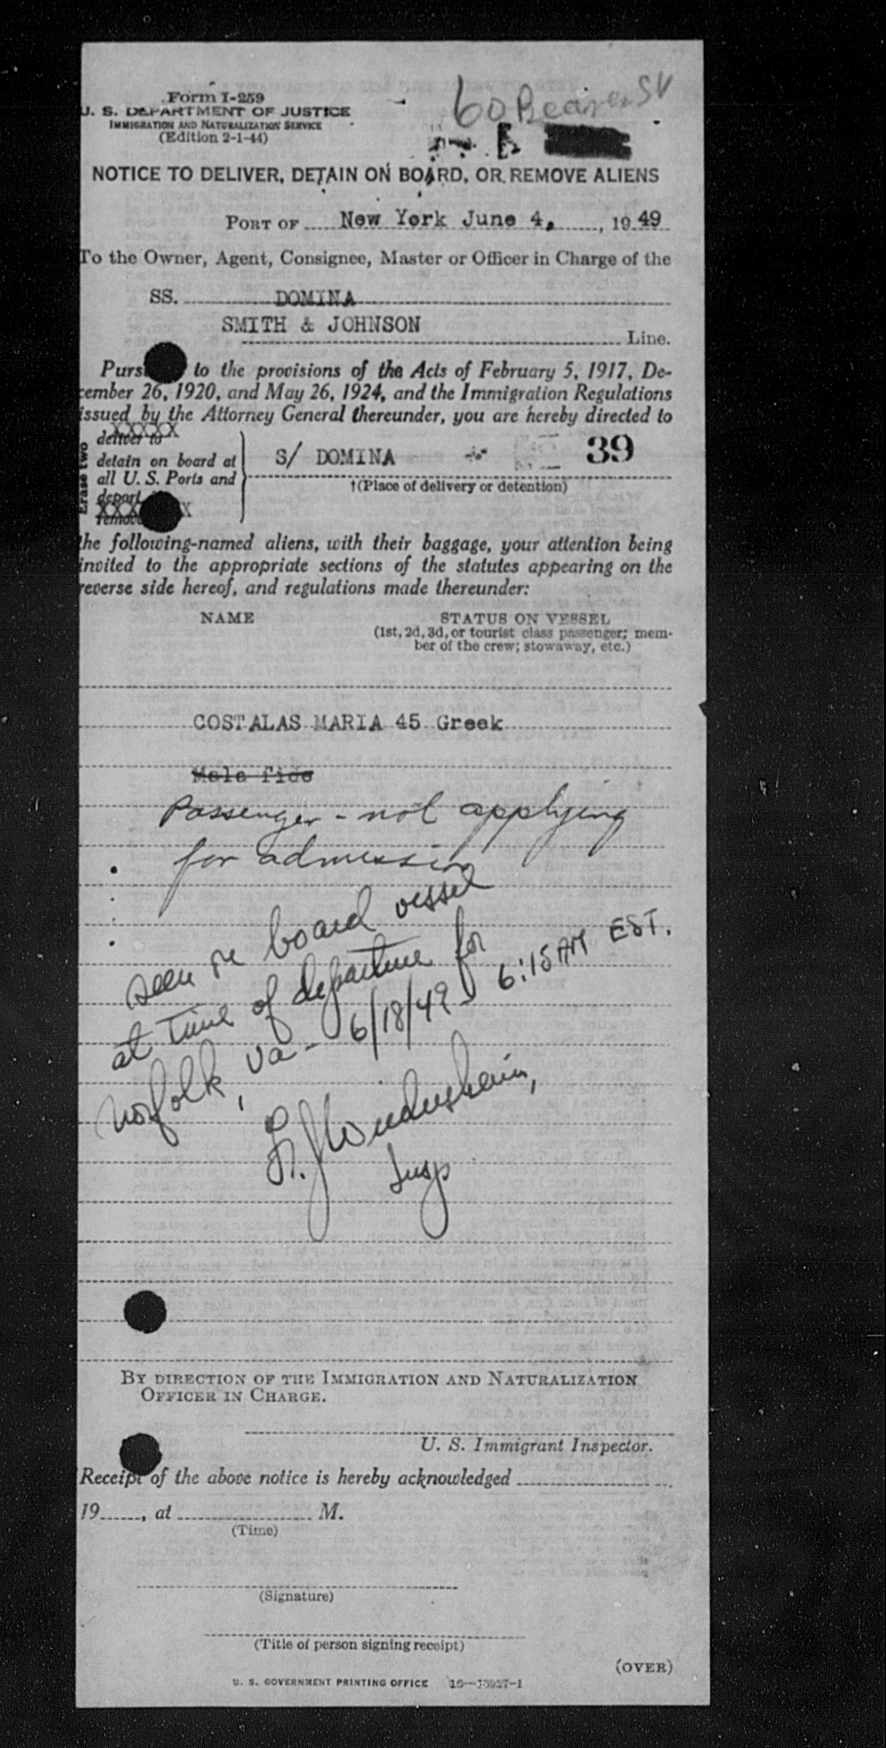 60 Beaver St
Form I-259
U. S. DEPARTMENT OF JUSTICE
IMMIGRATION AND NATURALIZATION SERVICE
(Edition 2-1-44)
NOTICE TO DELIVER, DETAIN ON BOARD, OR REMOVE ALIENS
PORT OF New York June 4, , 19 49
To the Owner, Agent, Consignee, Master or Officer in Charge of the
SS. DOMINA
SMITH & JOHNSON Line.
Purs to the provisions of the Acts of February 5, 1917, De-
cember 26, 1920, and May 26, 1924, and the Immigration Regulations
issued by the Attorney General thereunder, you are hereby directed to
deliver to
detain on board at
all U. S. Ports and
deport
remove
Erase two
S/ DOMINA 39
†(Place of delivery or detention)
the following-named aliens, with their baggage, your attention being
invited to the appropriate sections of the statutes appearing on the
reverse side hereof, and regulations made thereunder:
NAME STATUS ON VESSEL
(1st, 2d, 3d, or tourist class passenger; mem-
ber of the crew; stowaway, etc.)
COSTALAS MARIA 45 Greek
Mala fide
Passenger - not applying
for admission
seen on board vessel
at time of departure for
Norfolk, Va - 6/18/49 - 6:15 AM EST.
Insp
BY DIRECTION OF THE IMMIGRATION AND NATURALIZATION
OFFICER IN CHARGE.
U. S. Immigrant Inspector.
Receipt of the above notice is hereby acknowledged
19 , at M.
(Time)
(Signature)
(Title of person signing receipt)
(OVER)
U. S. GOVERNMENT PRINTING OFFICE